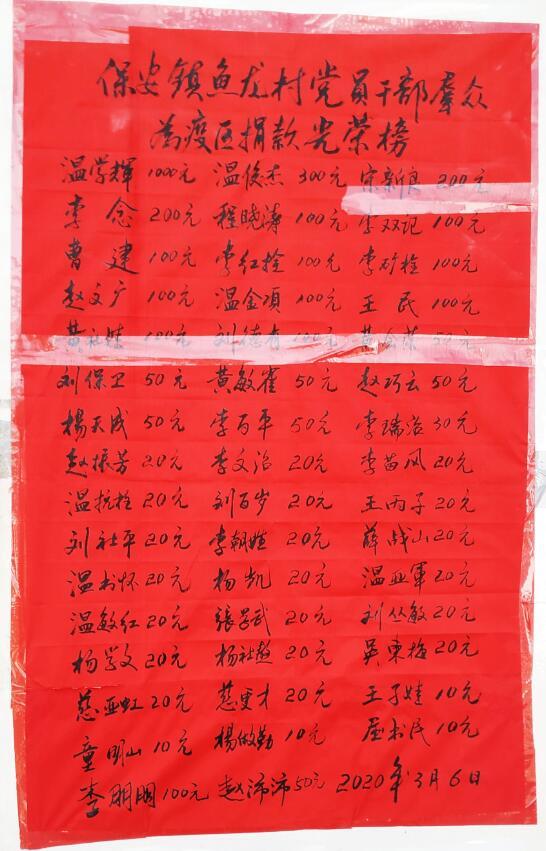 保安镇鱼龙村党员干部羣众
为疫区捐款光荣榜
温学辉 1000元 温俊杰 300元 宋新良 200元
李念 200元 程晓涛 100元 李双记 100元
曹建 100元 李红拴 100元 李矿栓 100元
赵文广 100元 温金项 100元 王民 100元
100元 刘德有 100元 50元
刘保卫 50元 黄敏霍 50元 赵巧云 50元
楊天成 50元 李百平 50元 李瑞治 30元
赵振芳 20元 李文治 20元 李苗风 20元
温抗栓 20元 刘百岁 20元 王丙子 20元
刘社平 20元 李朝 20元 薛战山 20元
温书怀 20元 杨凯 20元 温亚軍 20元
温敏红 20元 張学武 20元 刘丛敏 20元
杨学文 20元 杨社赵 20元 吴東梅 20元
慈亚虹 20元 慈更才 20元 王子娃 10元
童明山 10元 楊做勤 10元 屈书民 10元
李朋朋 100元 赵沛沛 50元 2020年3月6日